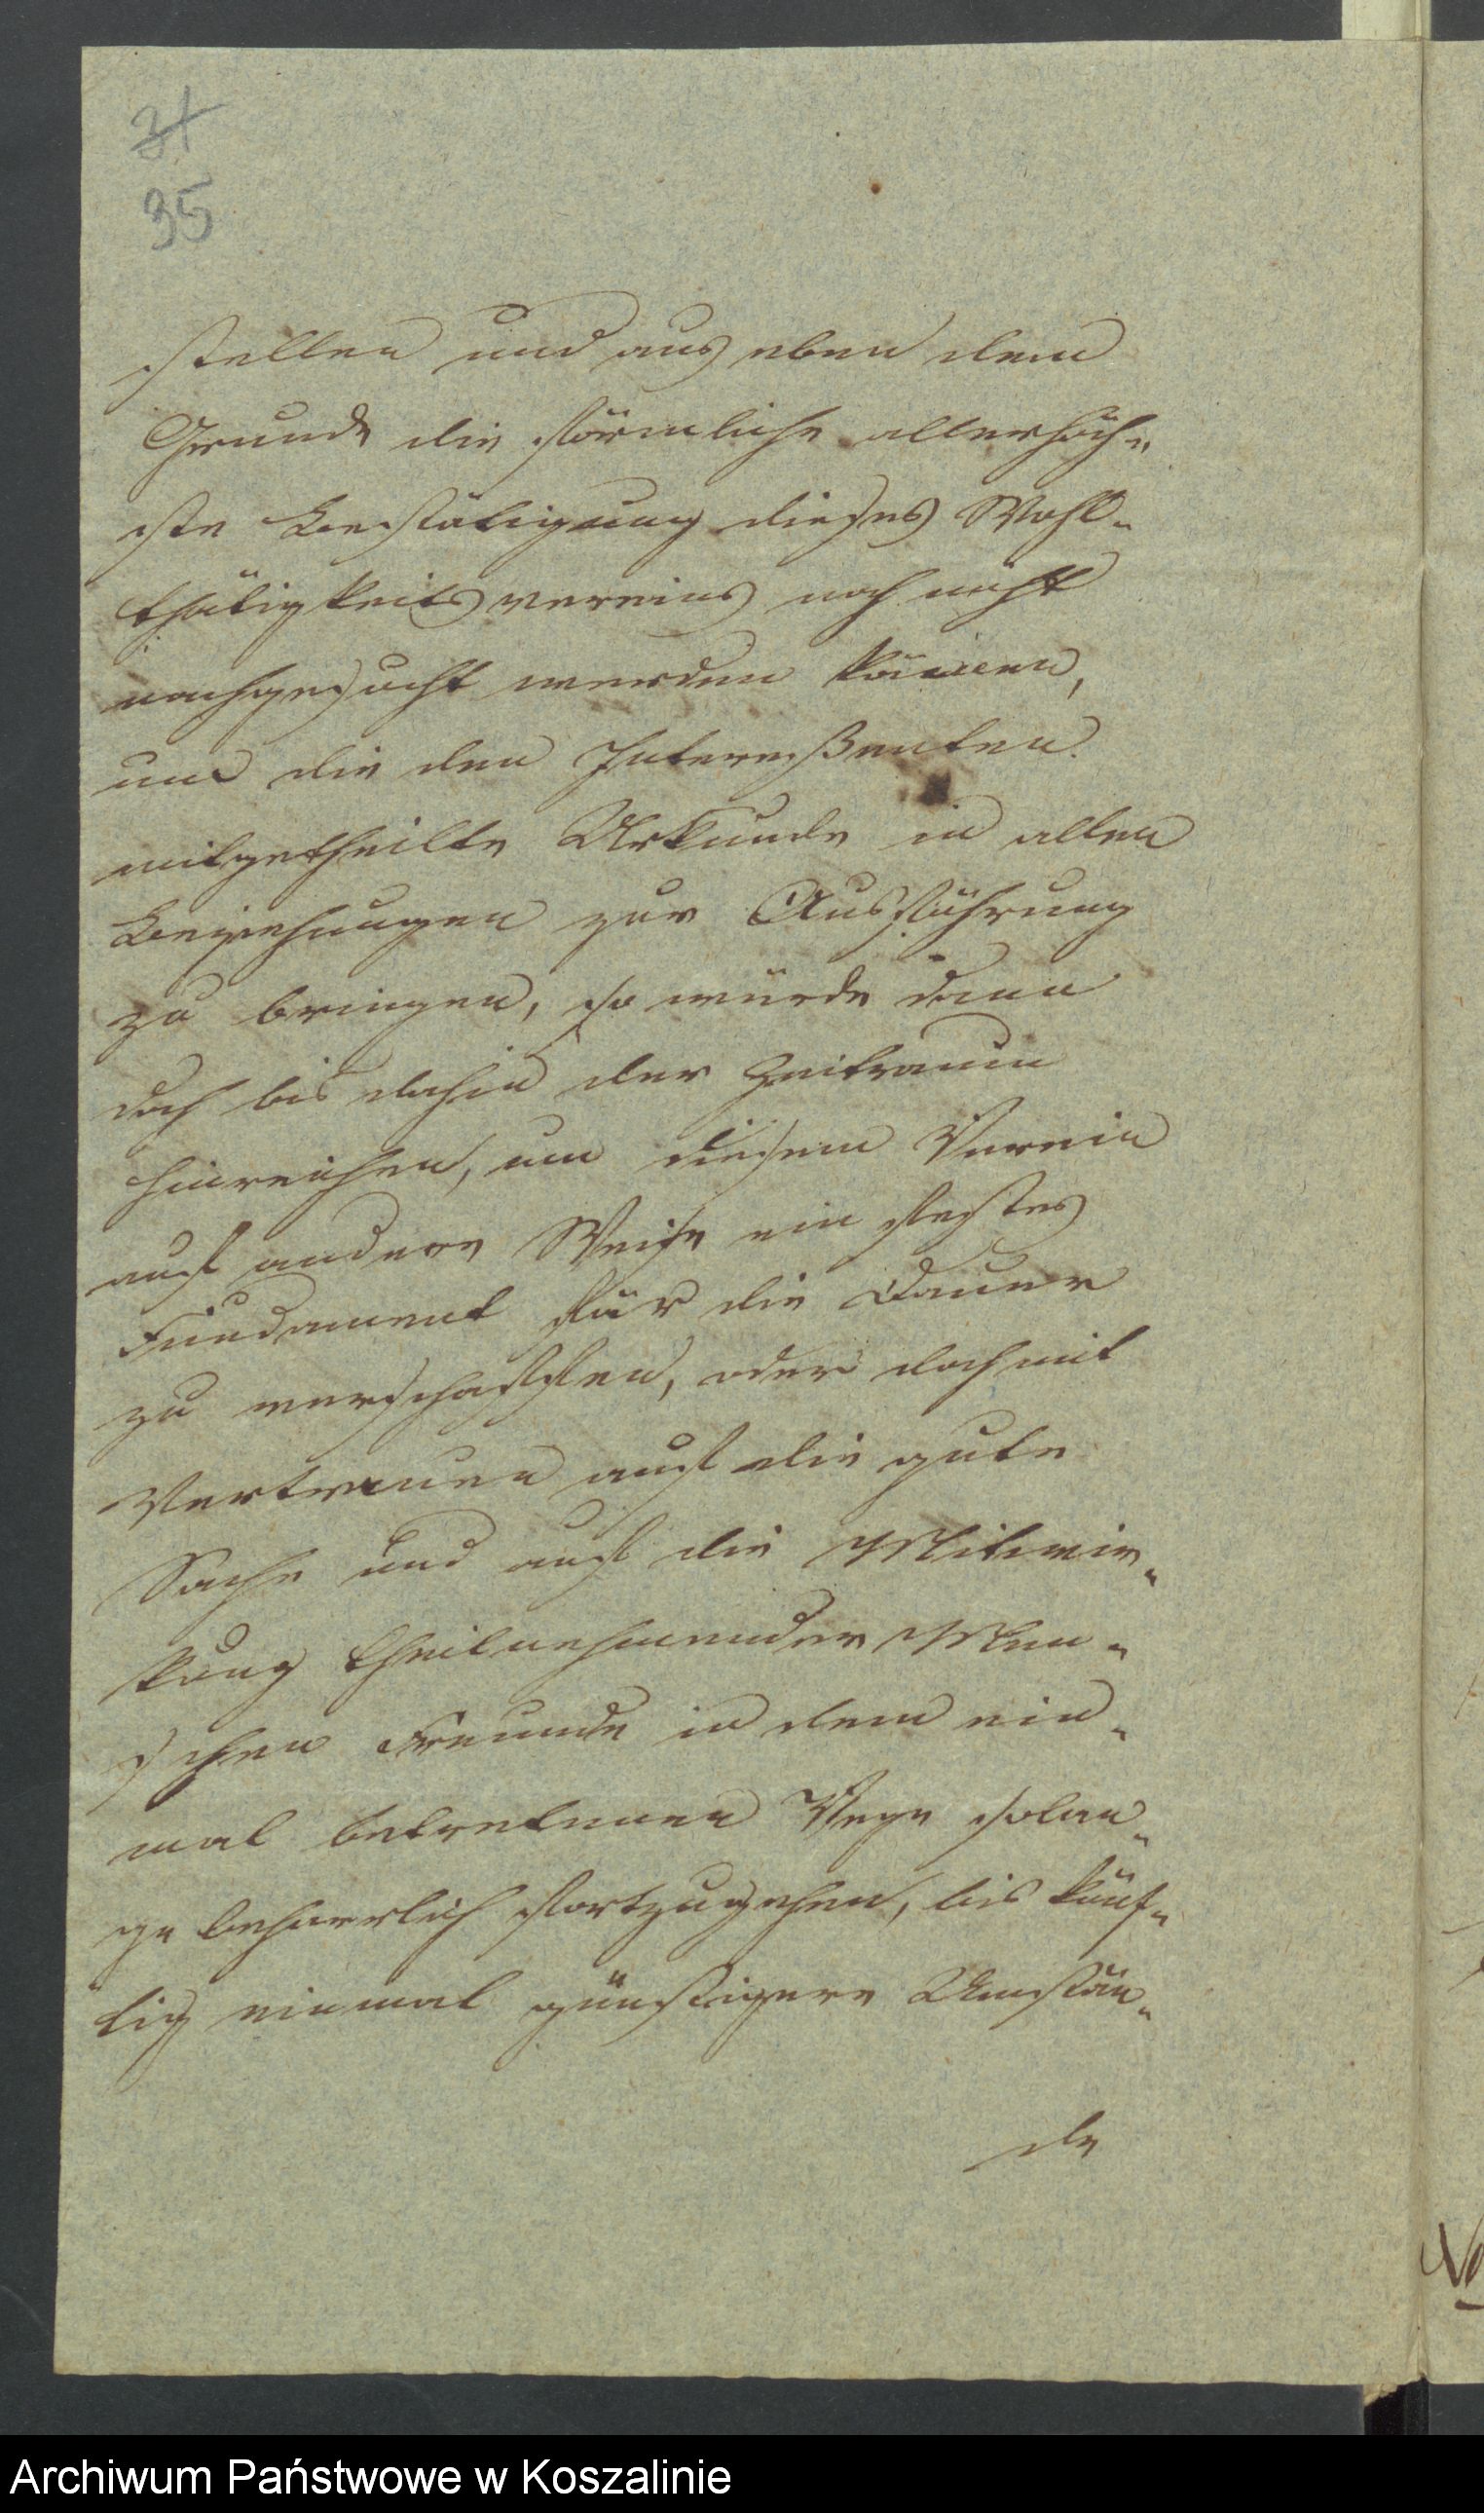 31
35
stellen und aus eben dem
Grunde die förmliche allerhöch-
ste Bestätigung dieses Wohl-
thätigkeitsvereins noch nicht
nachgesucht werden können,
um die den Intereßenten
mitgetheilte Urkunde in allen
Beziehungen zur Ausführung
zu bringen, so würde dann
doch bis dahin der Zeitraum
hinreichen, um diesem Verein
auf andere Weise ein festes
Fundament für die Dauer
zu verschaffen, oder doch mit
Vertrauen auf die gute
Sache und auf die Mitwir-
kung theilnehmender Men-
schen Freunde in dem ein-
mal betretenen Wege solan-
ge beharrlich fortzugehen, bis künf-
tig einmal günstigere Umstän-
de
Archiwum Państwowe w Koszalinie